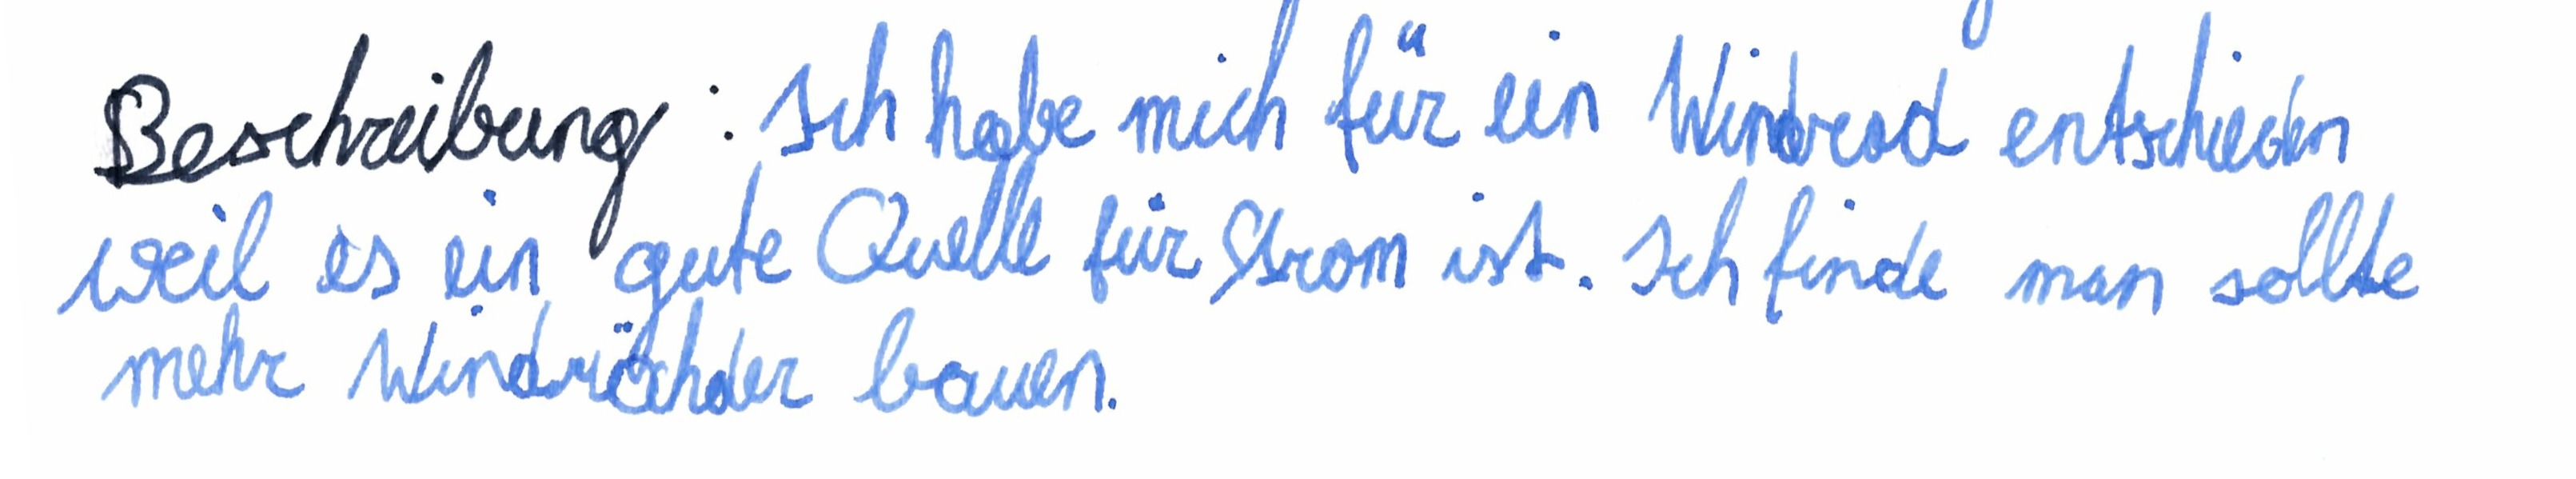 Beschreibung: Ich habe mich für ein Windrad entschieden
weil es ein gute Quelle für Strom ist. Ich finde man sollte
mehr Windrähder bauen.